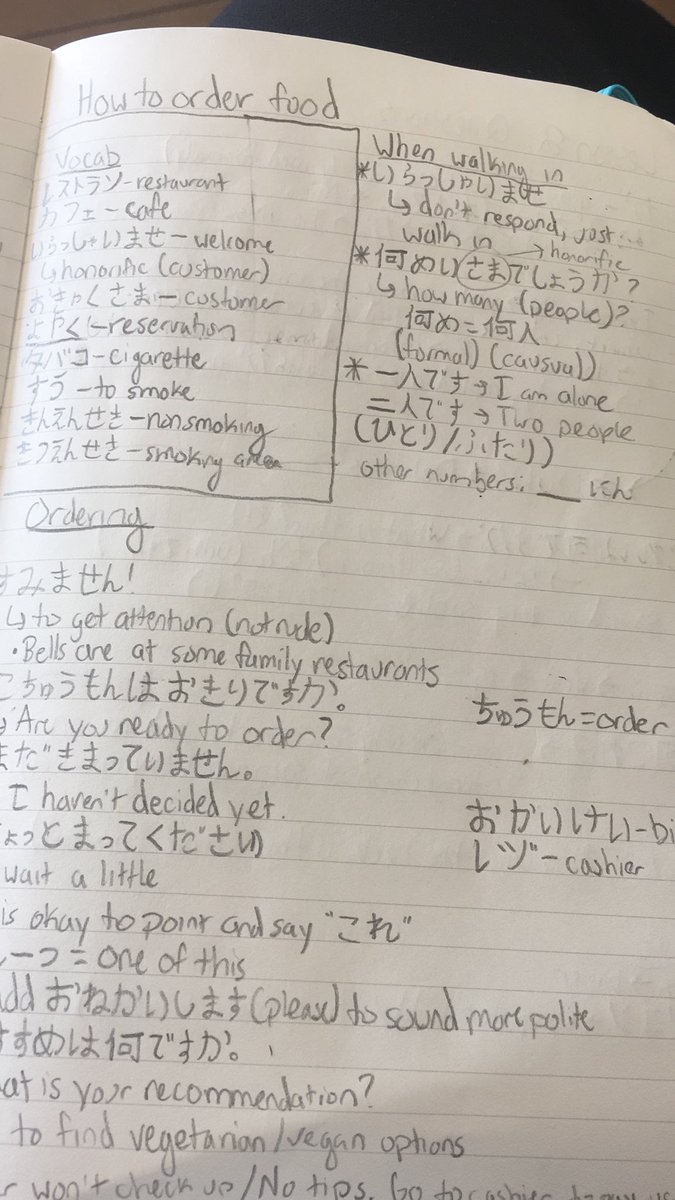 How to order food
Vocab
レストラン-restaurant
カフェ-cafe
いらっしゃいませ-welcome
↳honorific (customer)
おきゃくさま-customer
よやく-reservation
タバコ-cigarette
すう-to smoke
きんえんせき-nonsmoking
きつえんせき-smoking area
When walking in
*いらっしゃいませ
↳don't respond, just...
walk in
→honorific
*何めいさまでしょうか?
↳how many (people)?
何め=何人
(formal) (causual)
*一人です→I am alone
二人です→Two people
(ひとり/ふたり)
other numbers: __にん
Ordering
すみません!
↳to get attention (not rude)
•Bells are at some family restaurants
ごちゅうもんはおきりですか。
ちゅうもん=order
Are you ready to order?
まだきまっていません。
I haven't decided yet.
おかいけい-bi
ょっとまってください
レヅ-cashier
wait a little
is okay to point and say "これ"
一つ=one of this
add おねがいします(please) to sound more polite
すすめは何ですか。
at is your recommendation?
to find vegetarian/vegan options
won't check up/No tips. Go to cashier